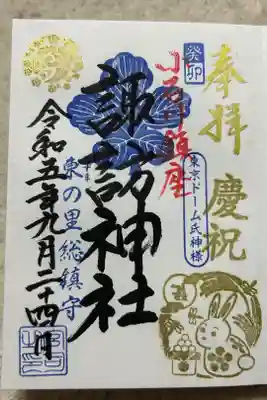 奉拝 慶祝
癸卯
東京ドーム氏神様
小石川鎮座
諏訪神社
東の里総鎮守
令和五年九月二十四日